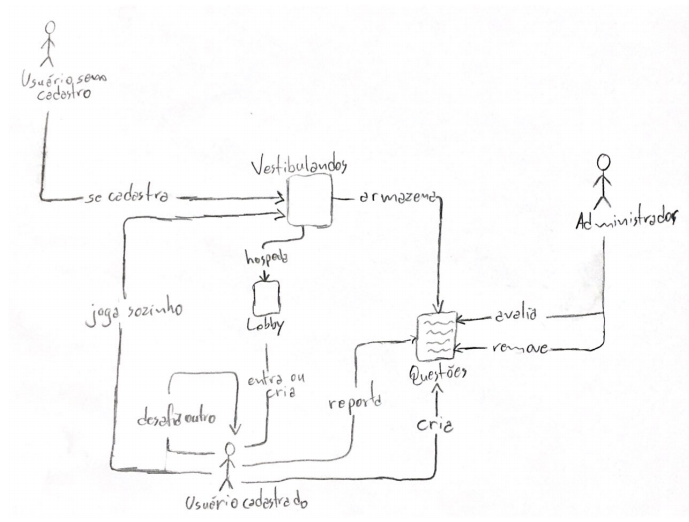 Usuário sem
cadastro
Vestibulandos
se cadastra
armazena
Administrador
hospeda
joga sozinho
Lobby
avalia
remove
Questões
entra ou
cria
desafia outro
reporta
cria
Usuário cadastrado